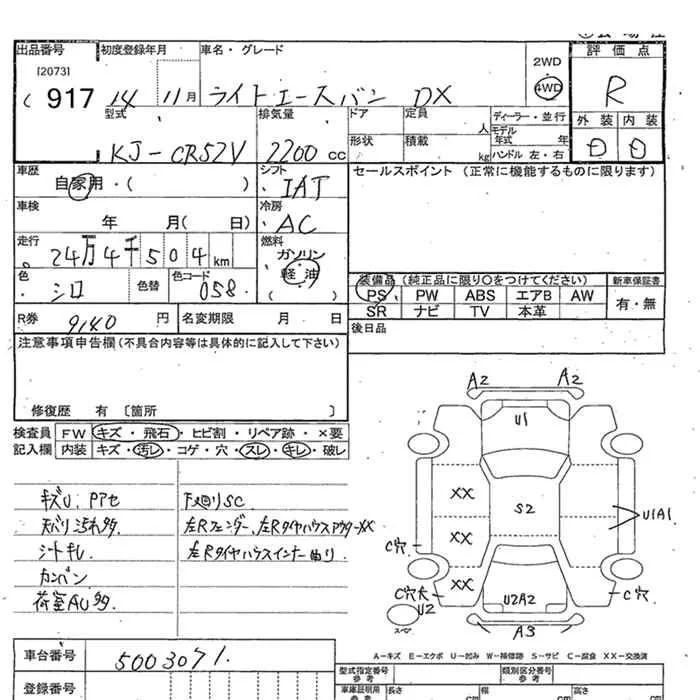 出品番号 初度登録年月 車名・グレード 評価点
[2073] 2WD
917 14 11月 ライトエースバン DX 4WD R
型式 排気量 ドア 定員 人 ディーラー・並行 外装 内装
形状 積載 kg モデル年式 年
KJ-CR52V 2200 cc ハンドル 左・右 D D
車歴 シフト セールスポイント (正常に機能するものに限ります)
自家用・( ) IAT
車検 冷房
年 月( 日) AC
走行 燃料
24万4千504 km ガソリン
軽油
( )
色 色替 色コード 装備品 (純正品に限り○をつけてください) 新車保証書
シロ 058 PS PW ABS エアB AW 有・無
SR ナビ TV 本革
R券 9140 円 名変期限 月 日 後日品
注意事項申告欄(不具合内容等は具体的に記入して下さい)
修復歴 有 〔箇所 〕
検査員 FW キズ・飛石・ヒビ割・リペア跡・×要
記入欄 内装 キズ・汚レ・コゲ・穴・スレ・キレ・破レ
A2 A2
U1
XX S2
XX U1A1
C穴
XX C穴
U2 U2A2
A3
キズU.
下廻りSC
天バリ汚れ多
左Rフェンダー、左RタイヤハウスアウターXX
シートキレ
左Rタイヤハウスインナー曲り
カンバン
荷室AU多.
A-キズ E-エクボ U-凹ミ W-補修跡 S-サビ C-腐食 XX-交換済
車台番号 5003071.
型式指定番号 参考 類別区分番号 参考
登録番号 車庫証明用 参考 長さ cm 幅 cm 高さ cm